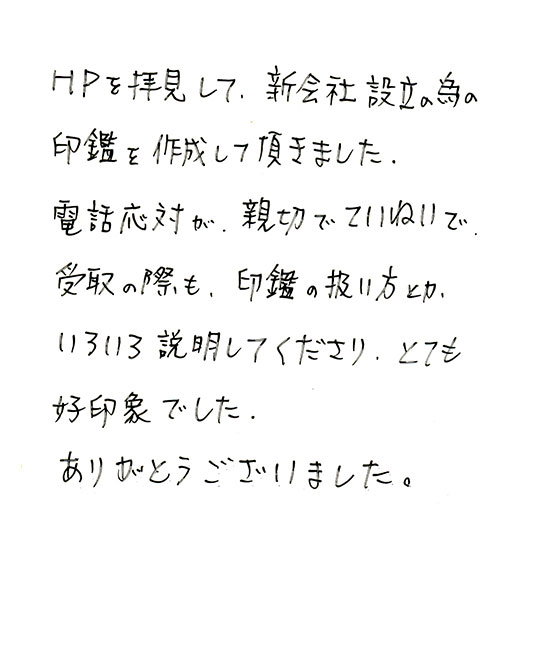 HPを拝見して、新会社設立の為の
印鑑を作成して頂きました.
電話応対が、親切でていねいで、
受取の際も、印鑑の扱い方とか、
いろいろ説明してくださり、とても
好印象でした.
ありがとうございました。